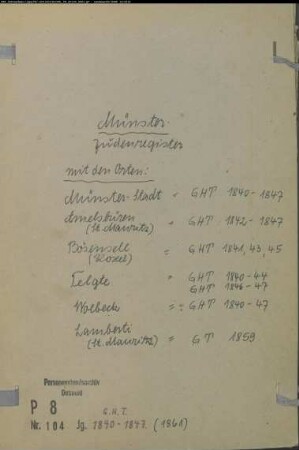 Münster.
Judenregister
mit den Orten:
Münster-Stadt = GHT 1840-1847
Amelsbüren = GHT 1842-1847
(St. Mauritz)
Bösensell = GHT 1841, 43, 45
(Roxel)
Telgte = GHT 1840-44
GHT 1846-47
Wolbeck = GHT 1840-47
Lamberti = GT 1859
(St. Mauritz)
Personenstandsarchiv
P 8 G.H.T.
Nr. 104 Jg. 1840-1847 (1861)